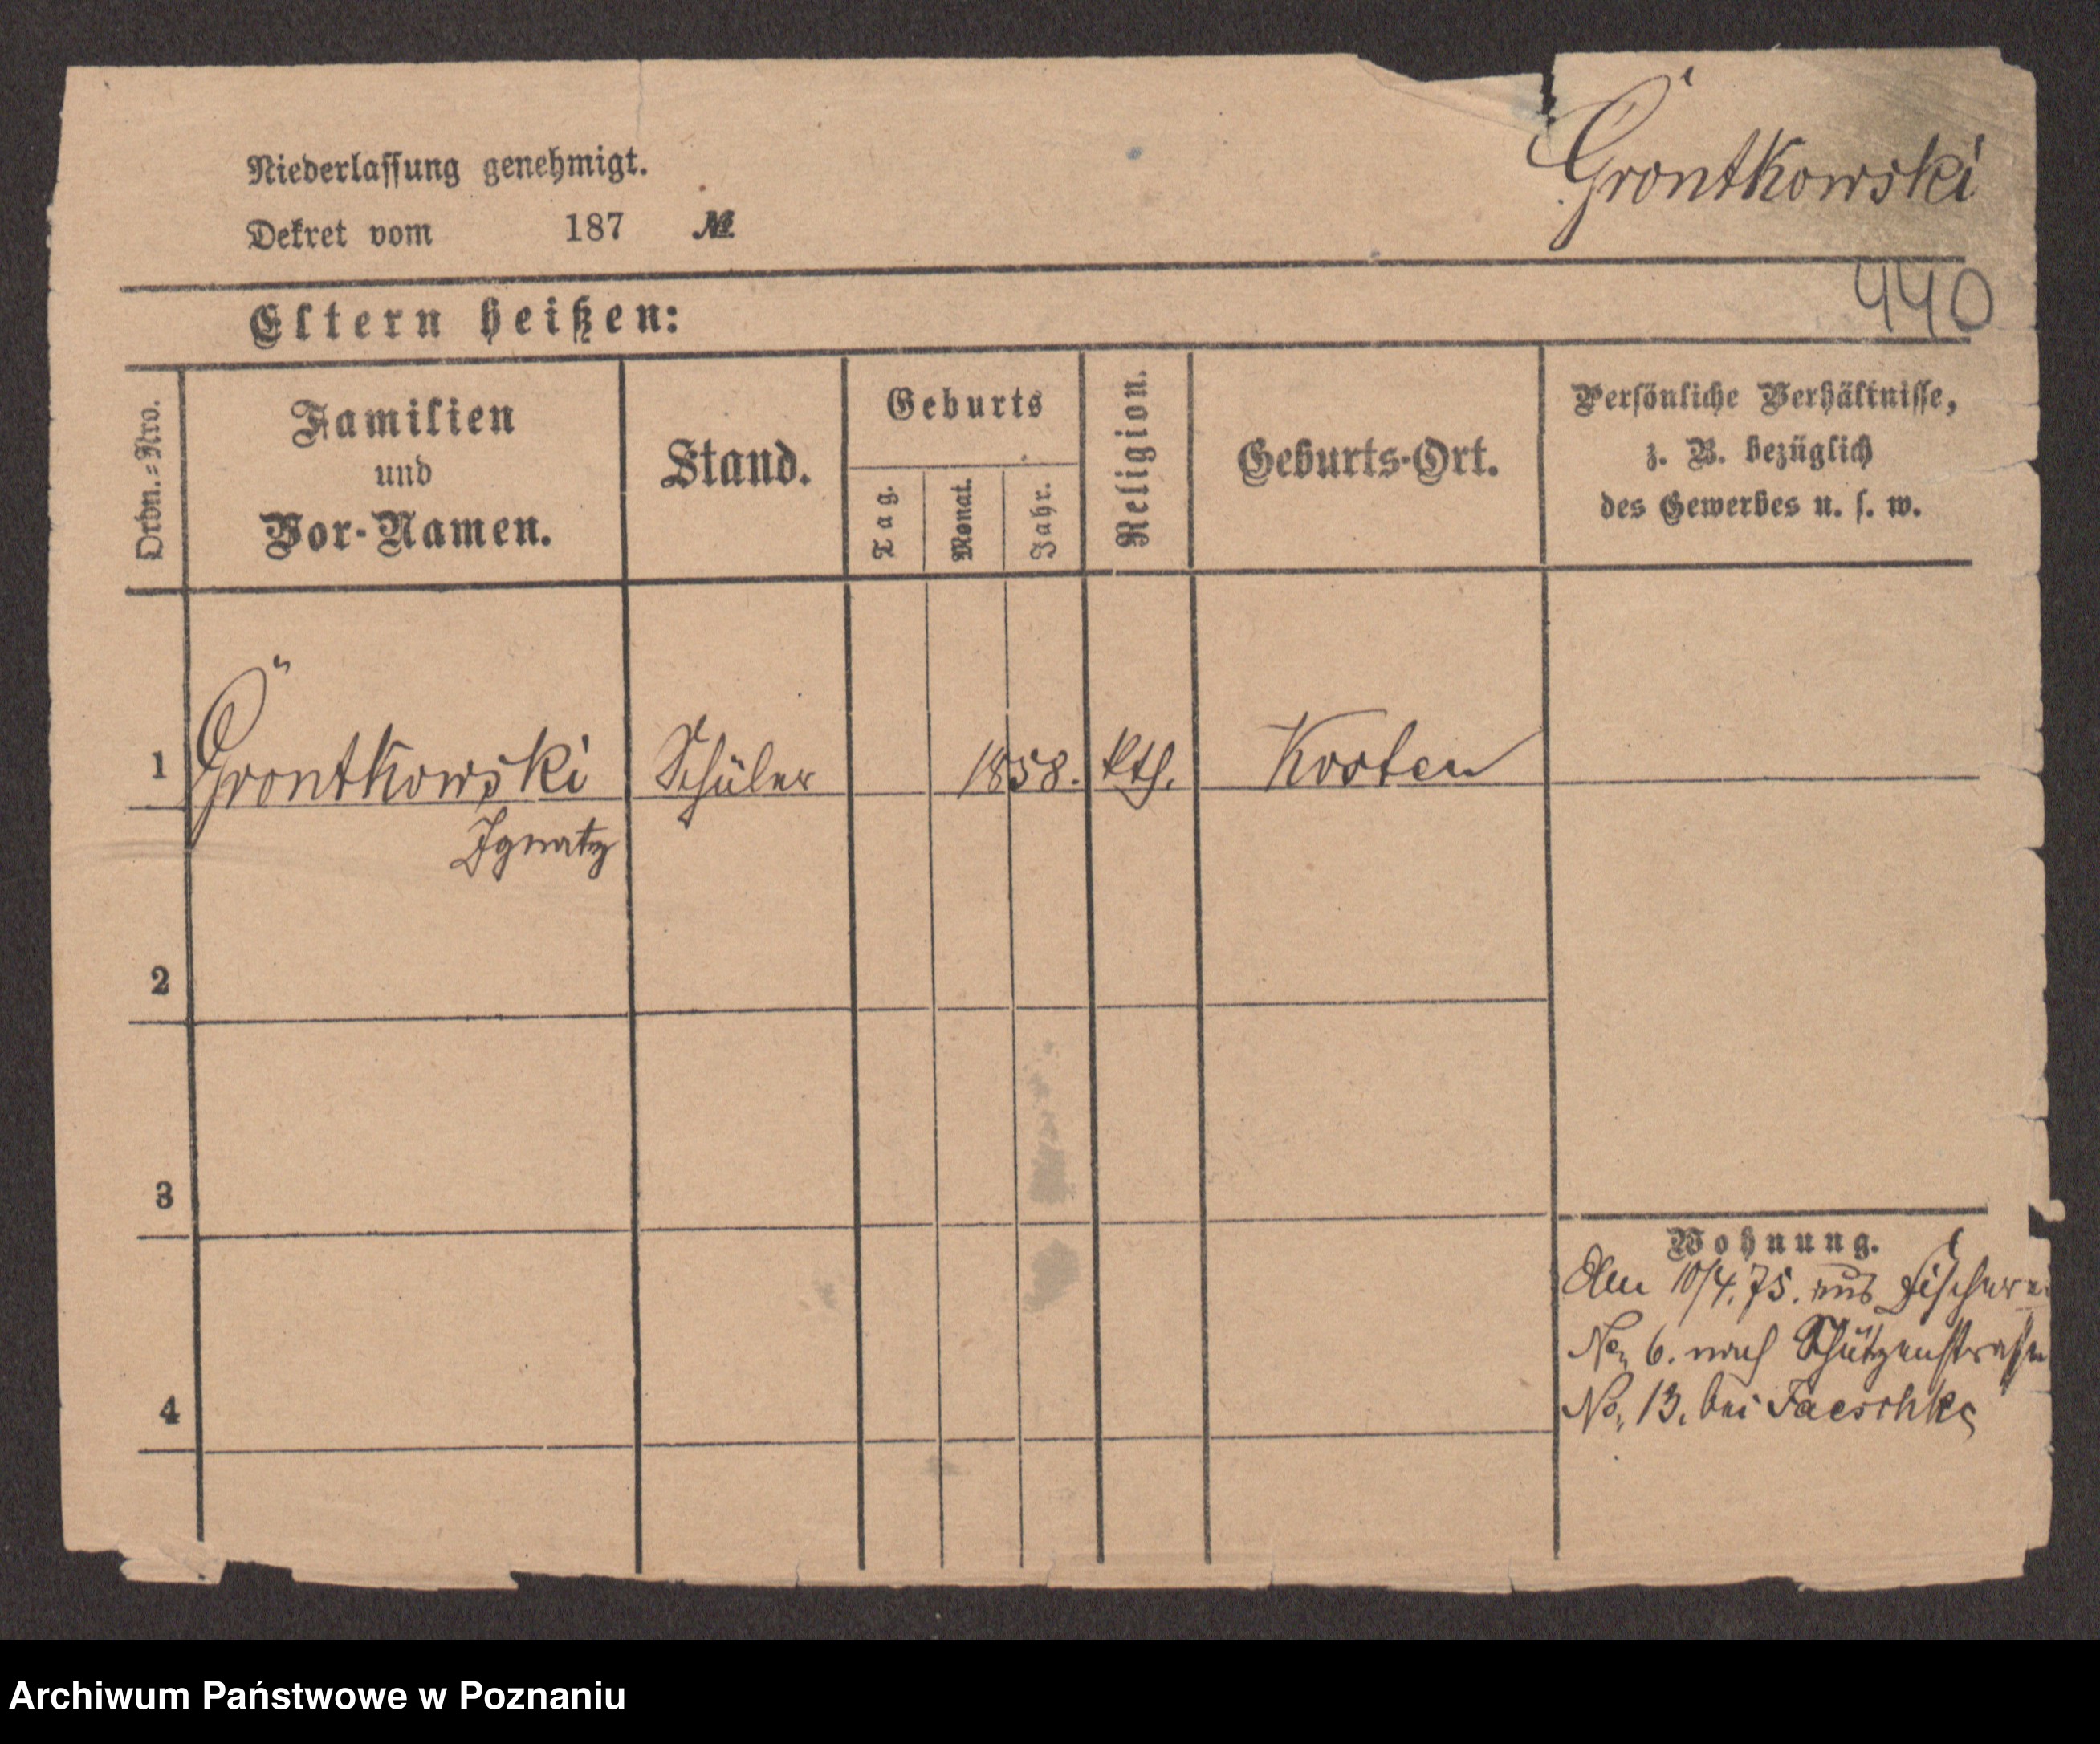 Grontkowski
Niederlassung genehmigt.
Dekret vom 187 №
440
Eltern heißen:
Ordn.-Nro.
Familien
und
Vor-Namen.
Stand.
Geburts
Tag.
Monat.
Jahr.
Religion.
Geburts-Ort.
Persönliche Verhältnisse,
z. B. bezüglich
des Gewerbes u. s. w.
1 Grontkowski Schüler 1858. kth. Kosten
Ignatz
2
3
4
Wohnung.
Am 10/4.75. aus Fischerei
No. 6. nach Schützenstrasse
No. 13. bei Faeschke
Archiwum Państwowe w Poznaniu